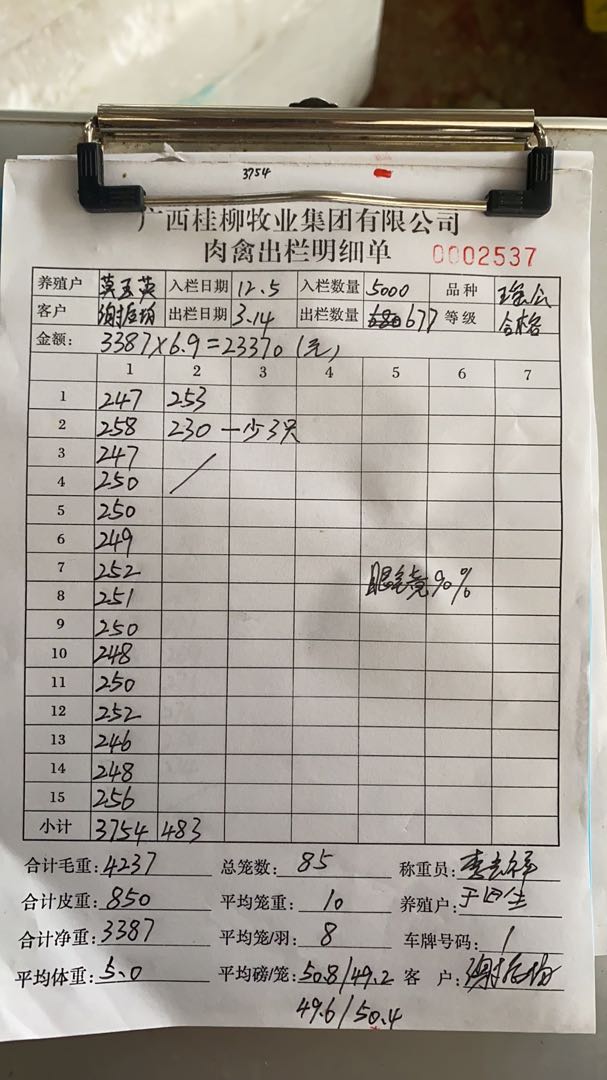 3754
广西桂柳牧业集团有限公司
肉禽出栏明细单 0002537
养殖户 莫玉英 入栏日期 12.5 入栏数量 5000 品种
客户 出栏日期 3.14 出栏数量 677 等级 合格
金额: 3387×6.9=23370(元)
1 2 3 4 5 6 7
1 247 253
2 258 230 一少3只
3 247
4 250
5 250
6 249
7 252
8 251 眼毛亮90%
9 250
10 248
11 250
12 252
13 246
14 248
15 256
小计 3754 483
合计毛重: 4237 总笼数: 85 称重员:
合计皮重: 850 平均笼重: 10 养殖户:
合计净重: 3387 平均笼/羽: 8 车牌号码: 1
平均体重: 5.0 平均磅/笼: 50.8/49.2 客 户:
49.6/50.4